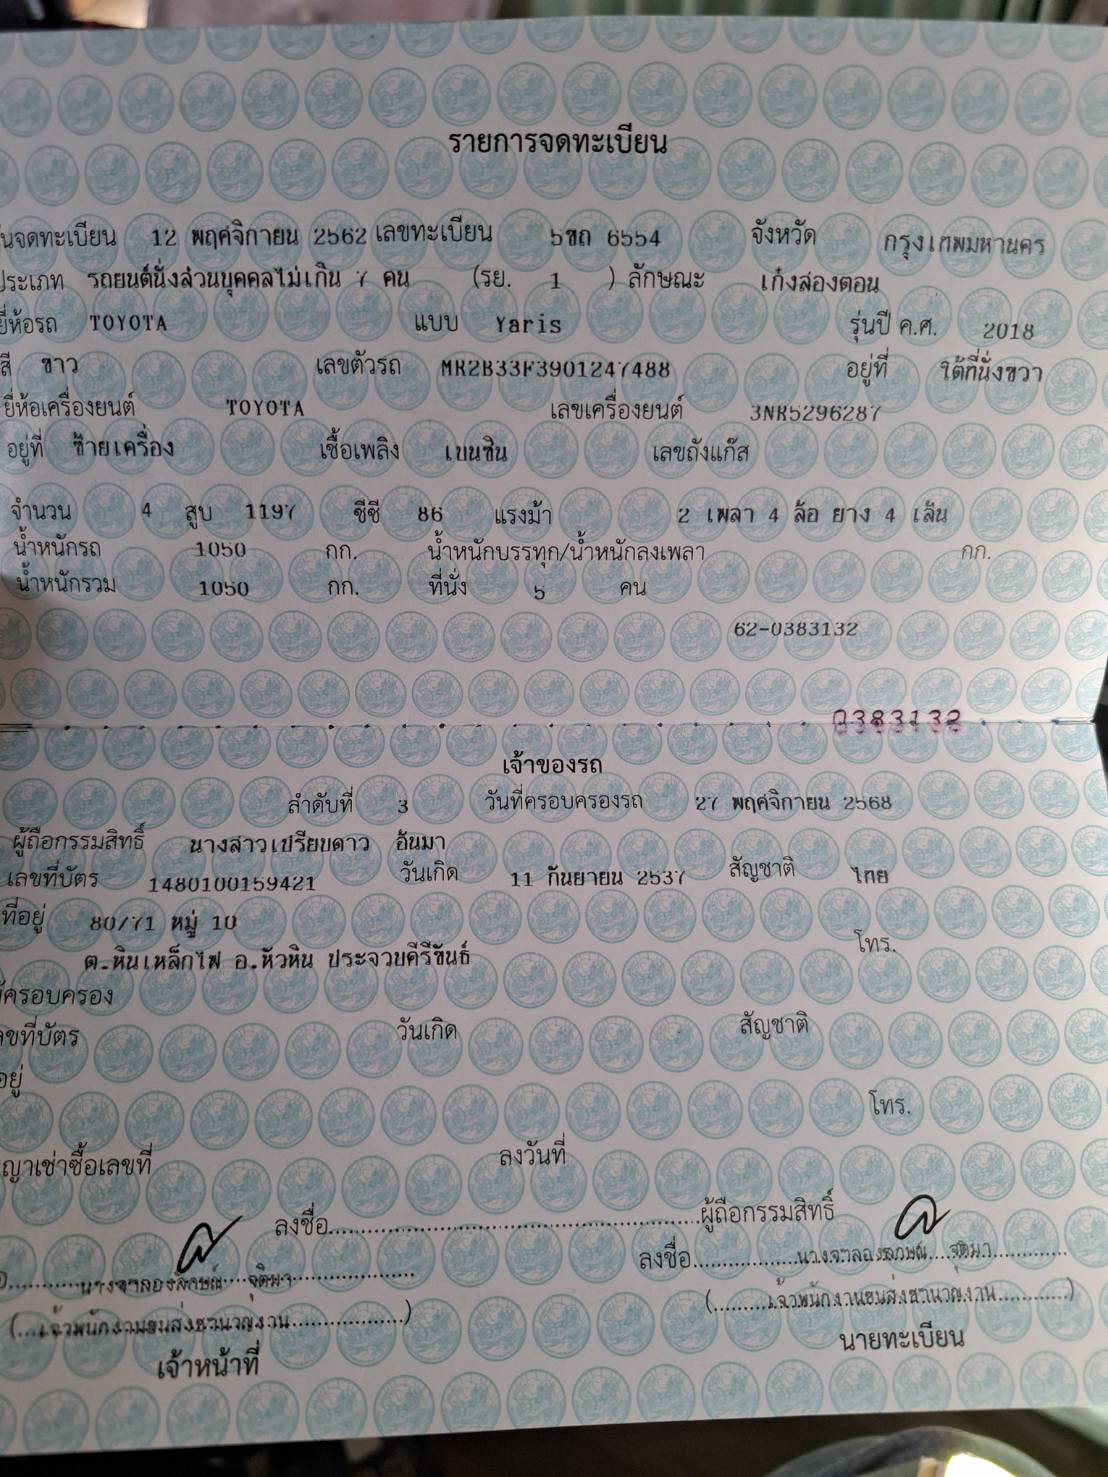 รายการจดทะเบียน
นจดทะเบียน 12 พฤศจิกายน 2562 เลขทะเบียน 5ขถ 6554 จังหวัด กรุงเทพมหานคร
ประเภท รถยนต์นั่งส่วนบุคคลไม่เกิน 7 คน (รย. 1 ) ลักษณะ เก๋งสองตอน
ยี่ห้อรถ TOYOTA แบบ Yaris รุ่นปี ค.ศ. 2018
สี ขาว เลขตัวรถ MR2B33F3901247488 อยู่ที่ ใต้ที่นั่งขวา
ยี่ห้อเครื่องยนต์ TOYOTA เลขเครื่องยนต์ 3NR5296287
อยู่ที่ ซ้ายเครื่อง เชื้อเพลิง เบนซิน เลขถังแก๊ส
จำนวน 4 สูบ 1197 ซีซี 86 แรงม้า 2 เพลา 4 ล้อ ยาง 4 เส้น
น้ำหนักรถ 1050 กก. น้ำหนักบรรทุก/น้ำหนักลงเพลา กก.
น้ำหนักรวม 1050 กก. ที่นั่ง 5 คน
62-0383132
0383132
เจ้าของรถ
ลำดับที่ 3 วันที่ครอบครองรถ 27 พฤศจิกายน 2568
ผู้ถือกรรมสิทธิ์ นางสาวเปรียบดาว อ้นมา
เลขที่บัตร 1480100159421 วันเกิด 11 กันยายน 2537 สัญชาติ ไทย
ที่อยู่ 80/71 หมู่ 10 โทร.
ต.หินเหล็กไฟ อ.หัวหิน ประจวบคีรีขันธ์
ครอบครอง
ขที่บัตร วันเกิด สัญชาติ
อยู่
โทร.
ญาเช่าซื้อเลขที่ ลงวันที่
ลงชื่อ ผู้ถือกรรมสิทธิ์
นางจำลองลักษณ์ จุติมา ลงชื่อ นางจำลองลักษณ์ จุติมา
(เจ้าพนักงานขนส่งชำนาญงาน) (เจ้าพนักงานขนส่งชำนาญงาน)
เจ้าหน้าที่ นายทะเบียน